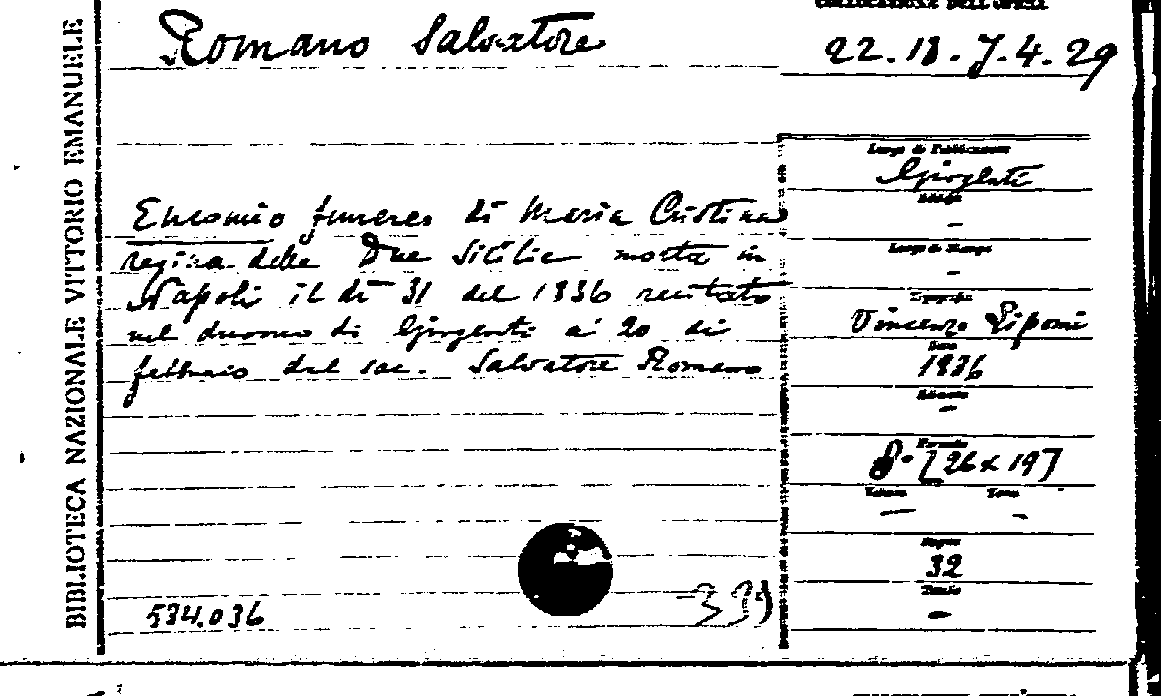 COLLOCAZIONE DELL'OPERA
Romano Salvatore
22.18.J.4.29
BIBLIOTECA NAZIONALE VITTORIO EMANUELE
Encomio funebre di Maria Cristina
regina delle Due Sicilie morta in
Napoli il dì 31 del 1836 recitato
nel duomo di Girgenti ai 20 di
febbraio dal sac. Salvatore Romano
Luogo di Pubblicazione
Girgenti
Luogo di Stampa
-
Tipografia
Vincenzo Lipomi
Data
1836
-
Formato
8-[26x19]
Volume Tomo
— -
Pagine
32
-
534.036
339